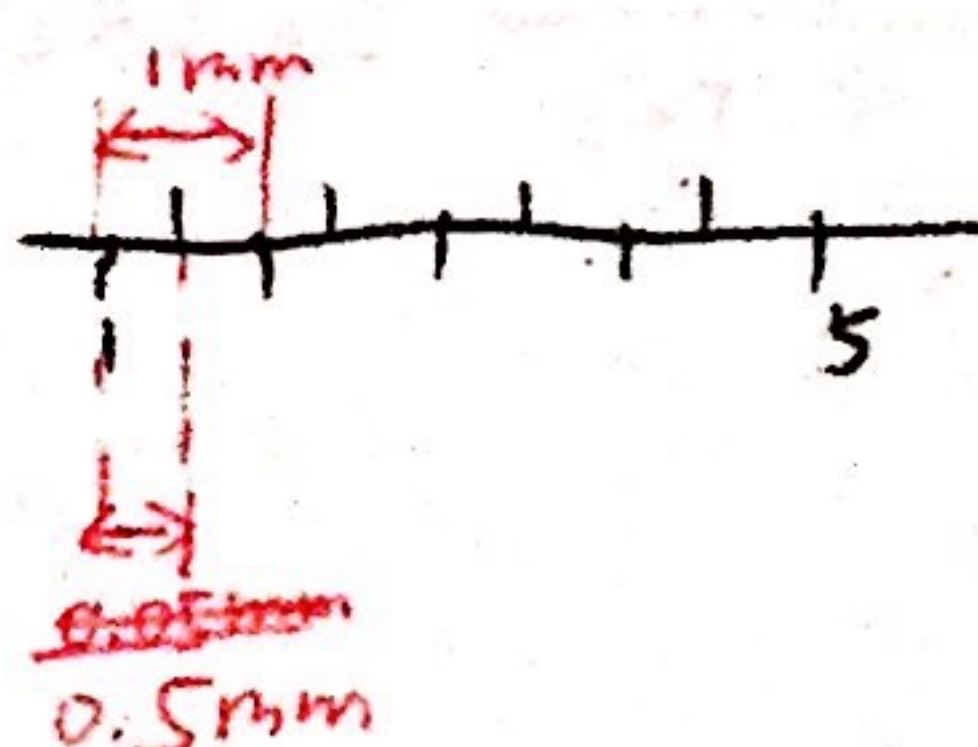 1mm
1
5
0.05mm
0.5mm